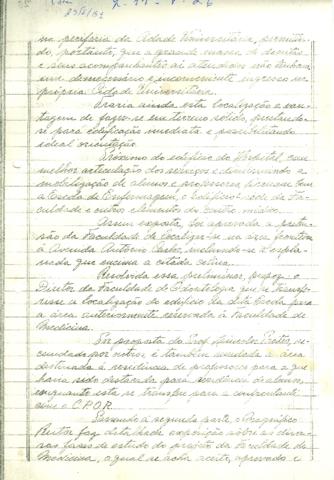 na periferia da Cidade Universitária, permitin-
do, portanto, que a grande massa de doentes
e seus acompanhantes ali atendidos não tenham
um desnecessário e inconveniente ingresso na
própria Cidade Universitária.
Traria ainda esta localização a van-
tagem de fazer-se em terreno sólido, prestando-
se para edificação imediata e possibilitando
ideal orientação.
Próximo do edifício do Hospital, com
melhor articulação dos serviços e
mobilização de alunos e professores ficariam
a Escola de Enfermagem, o Edifício-sede da Fa-
culdade e outros elementos do Centro médico.
Assim exposta, foi aprovada a preten-
são da Faculdade de localizar-se na área fronteira
à Avenida Antonio Carlos, incluindo-se a espla-
nada que encima a citada colina.
Resolvida essa preliminar, propoz o
Diretor da Faculdade de Odontologia que se transfe-
risse a localização do edifício da dita Escola para
a área anteriormente reservada à Faculdade de
Medicina.
Por proposta do Prof. Aniceto, se-
cundada por outros, é também mudada a área
destinada à residência de professores para a que
havia sido destacada para residência de alunos,
enquanto esta se transfere para a
o C.P.O.R.
Passando à segunda parte, o Magnífico
Reitor faz detalhada exposição sôbre as diver-
sas fases de estudo do projeto da Faculdade de
Medicina, o qual se acha aceito, aprovado e